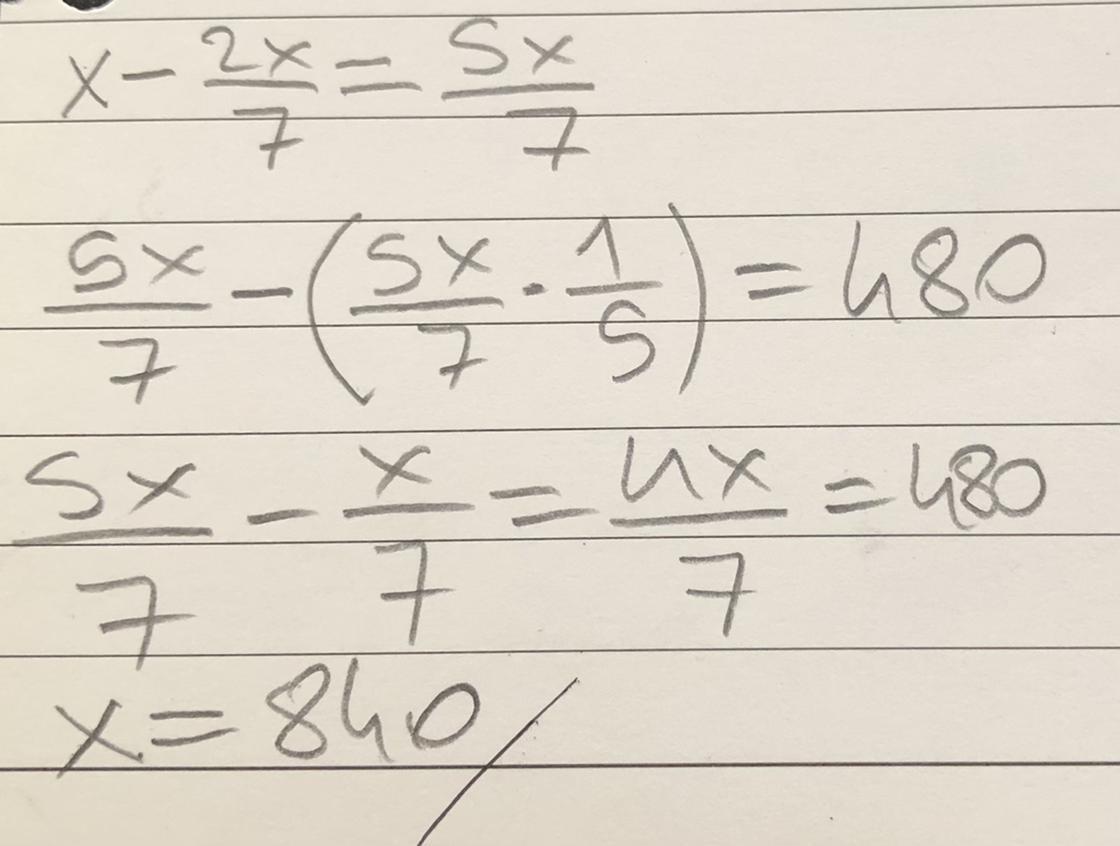 x - 2x/7 = 5x/7
5x/7 - (5x/7 · 1/5) = 480
5x/7 - x/7 = 4x/7 = 480
x = 840